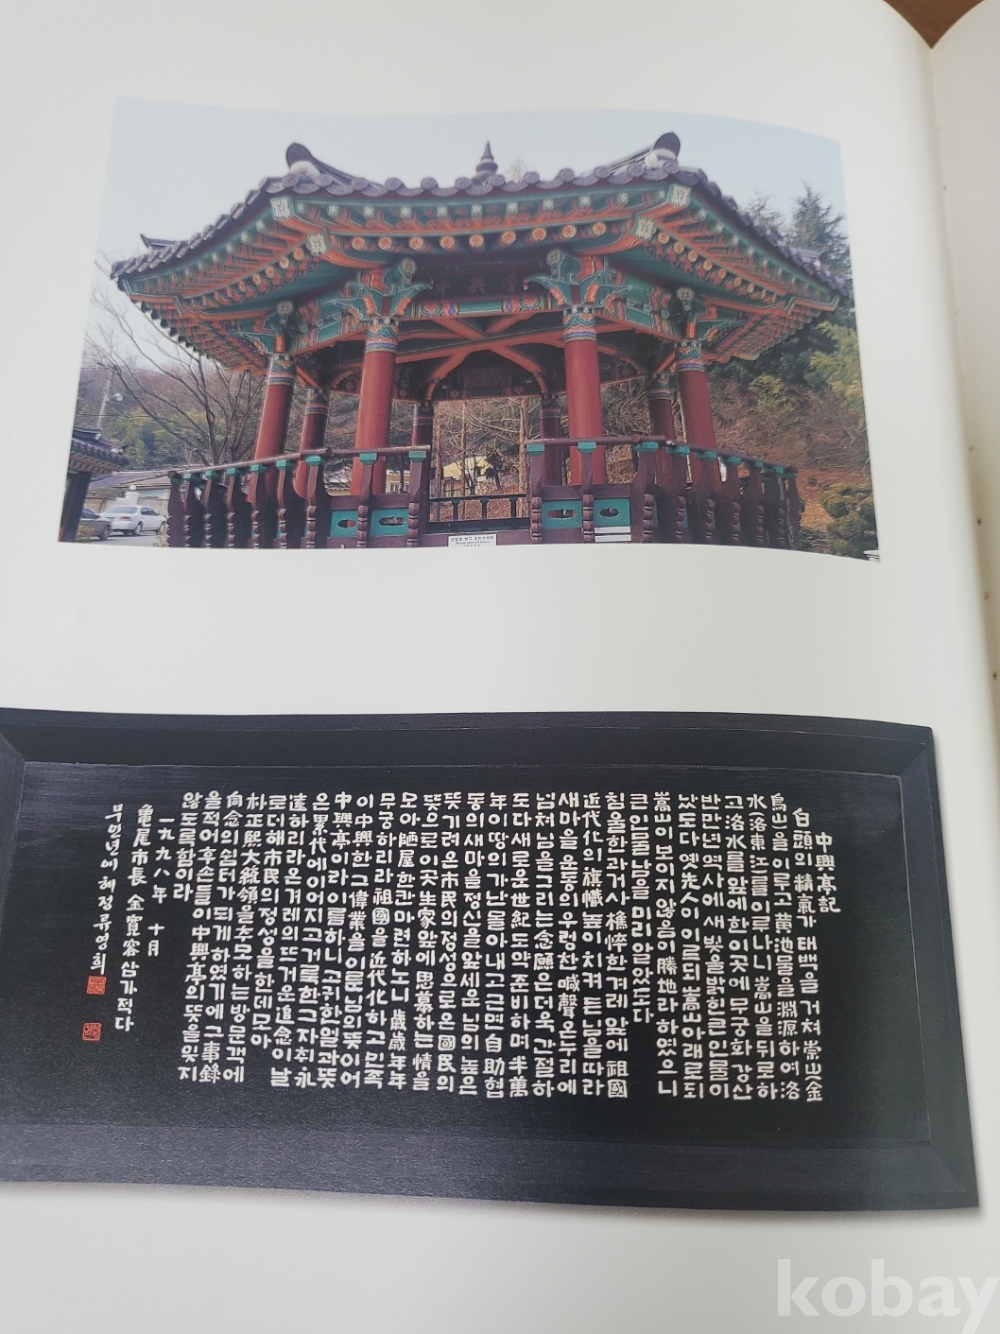 中興亭記
白頭의精氣가태백을거쳐崇山(金
烏山)을이루고黃池물을淵源하여洛
水(洛東江)를이루나니嵩山을뒤로하
고洛水를앞에한이곳에무궁화강산
반만년역사에새빛을밝힌큰인물이
났도다옛先人이이르되嵩山아래로되
嵩山이보이지않을이勝地라하였으니
큰인물남을미리알았도다
침울한과거사憔悴한겨레앞에祖國
近代化의旗幟높이치켜든님을따라
새마을운동의우렁찬喊聲온누리에
넘처님을그리는念願은더욱간절하
도다새로운世紀도약준비하며半萬
年이땅의가난몰아내고근면自助협
동의새마을정신을앞세운님의높은
뜻기려온市民의정성으로온國民의
뜻으로이곳生家앞에思慕하는情을
모아陋屋한칸마련하노니歲歲年年
무궁하리라祖國을近代化하고민족
이中興한그偉業을이룬님의뜻이어
中興亭이라이름하니고귀한얼과뜻
은累代에이어지고거룩한그자취永
遠하리라온겨레의뜨거운追念이날
로더해市民의정성을한데모아
朴正熙大統領을추모하는방문객에
向念의쉼터가되게하였기에그事錄
을적어후손들이中興亭의뜻을잊지
않도록함이라
一九九八年 十月
龜尾市長 金寬容삼가적다
무인년에 혜정류영희
kobay